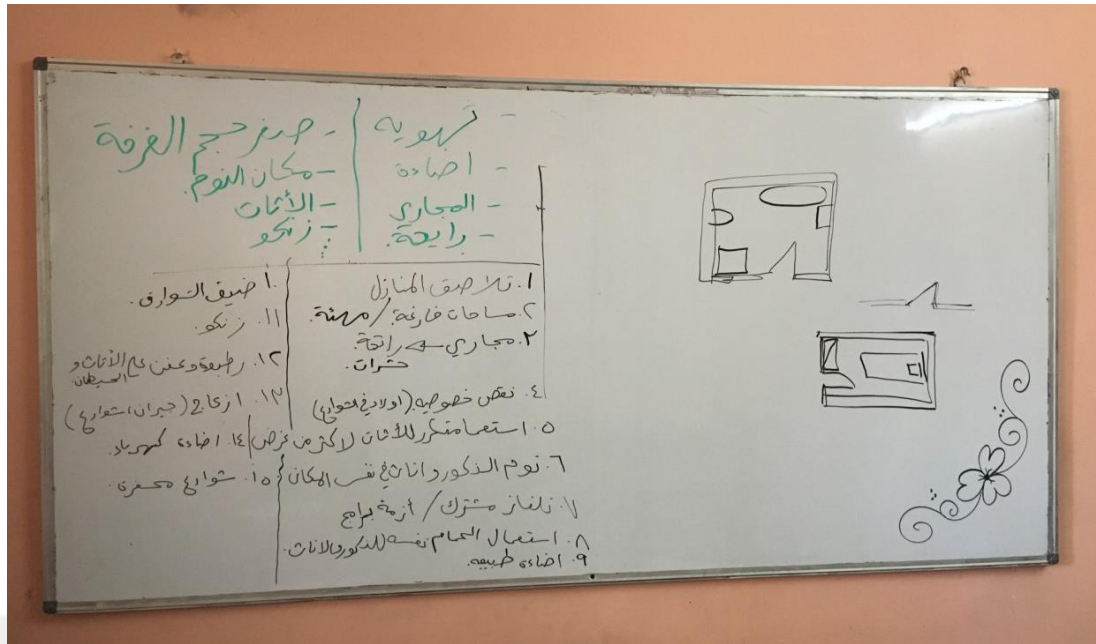 - تهوية
- اضاءة
- المجاري
- رايحة.
- صغر حجم الغرفة
- مكان النوم.
- الأثاث
- زنكو
١. تلاصق المنازل
٢. مساحات فارغة / مهملة.
٣. مجاري ← رائحة.
حشرات.
٤. نقص خصوصيه. (اولاد في الشوارع)
٥. استعمال متكرر للأثاث لاكثر من غرض
٦. نوم الذكور و اناث في نفس المكان
٧. تلفاز مشترك / أزمة برامج
٨. استعمال الحمام نفسه للذكور والاناث.
٩. اضاءه طبيعيه.
١٠. ضيق الشوارع.
١١. زنكو.
١٢. رطوبة وعفن على الأثاث و الحيطان.
١٣. ازعاج (جيران، شوارع)
١٤. اضاءه كهرباء.
١٥. شوارع محفرة.